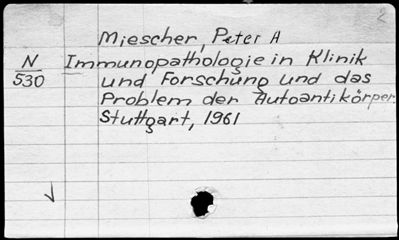 Miescher, Peter A
N Immunopathologie in Klinik
530 und Forschung und das
Problem der Autoantikörper.
Stuttgart, 1961